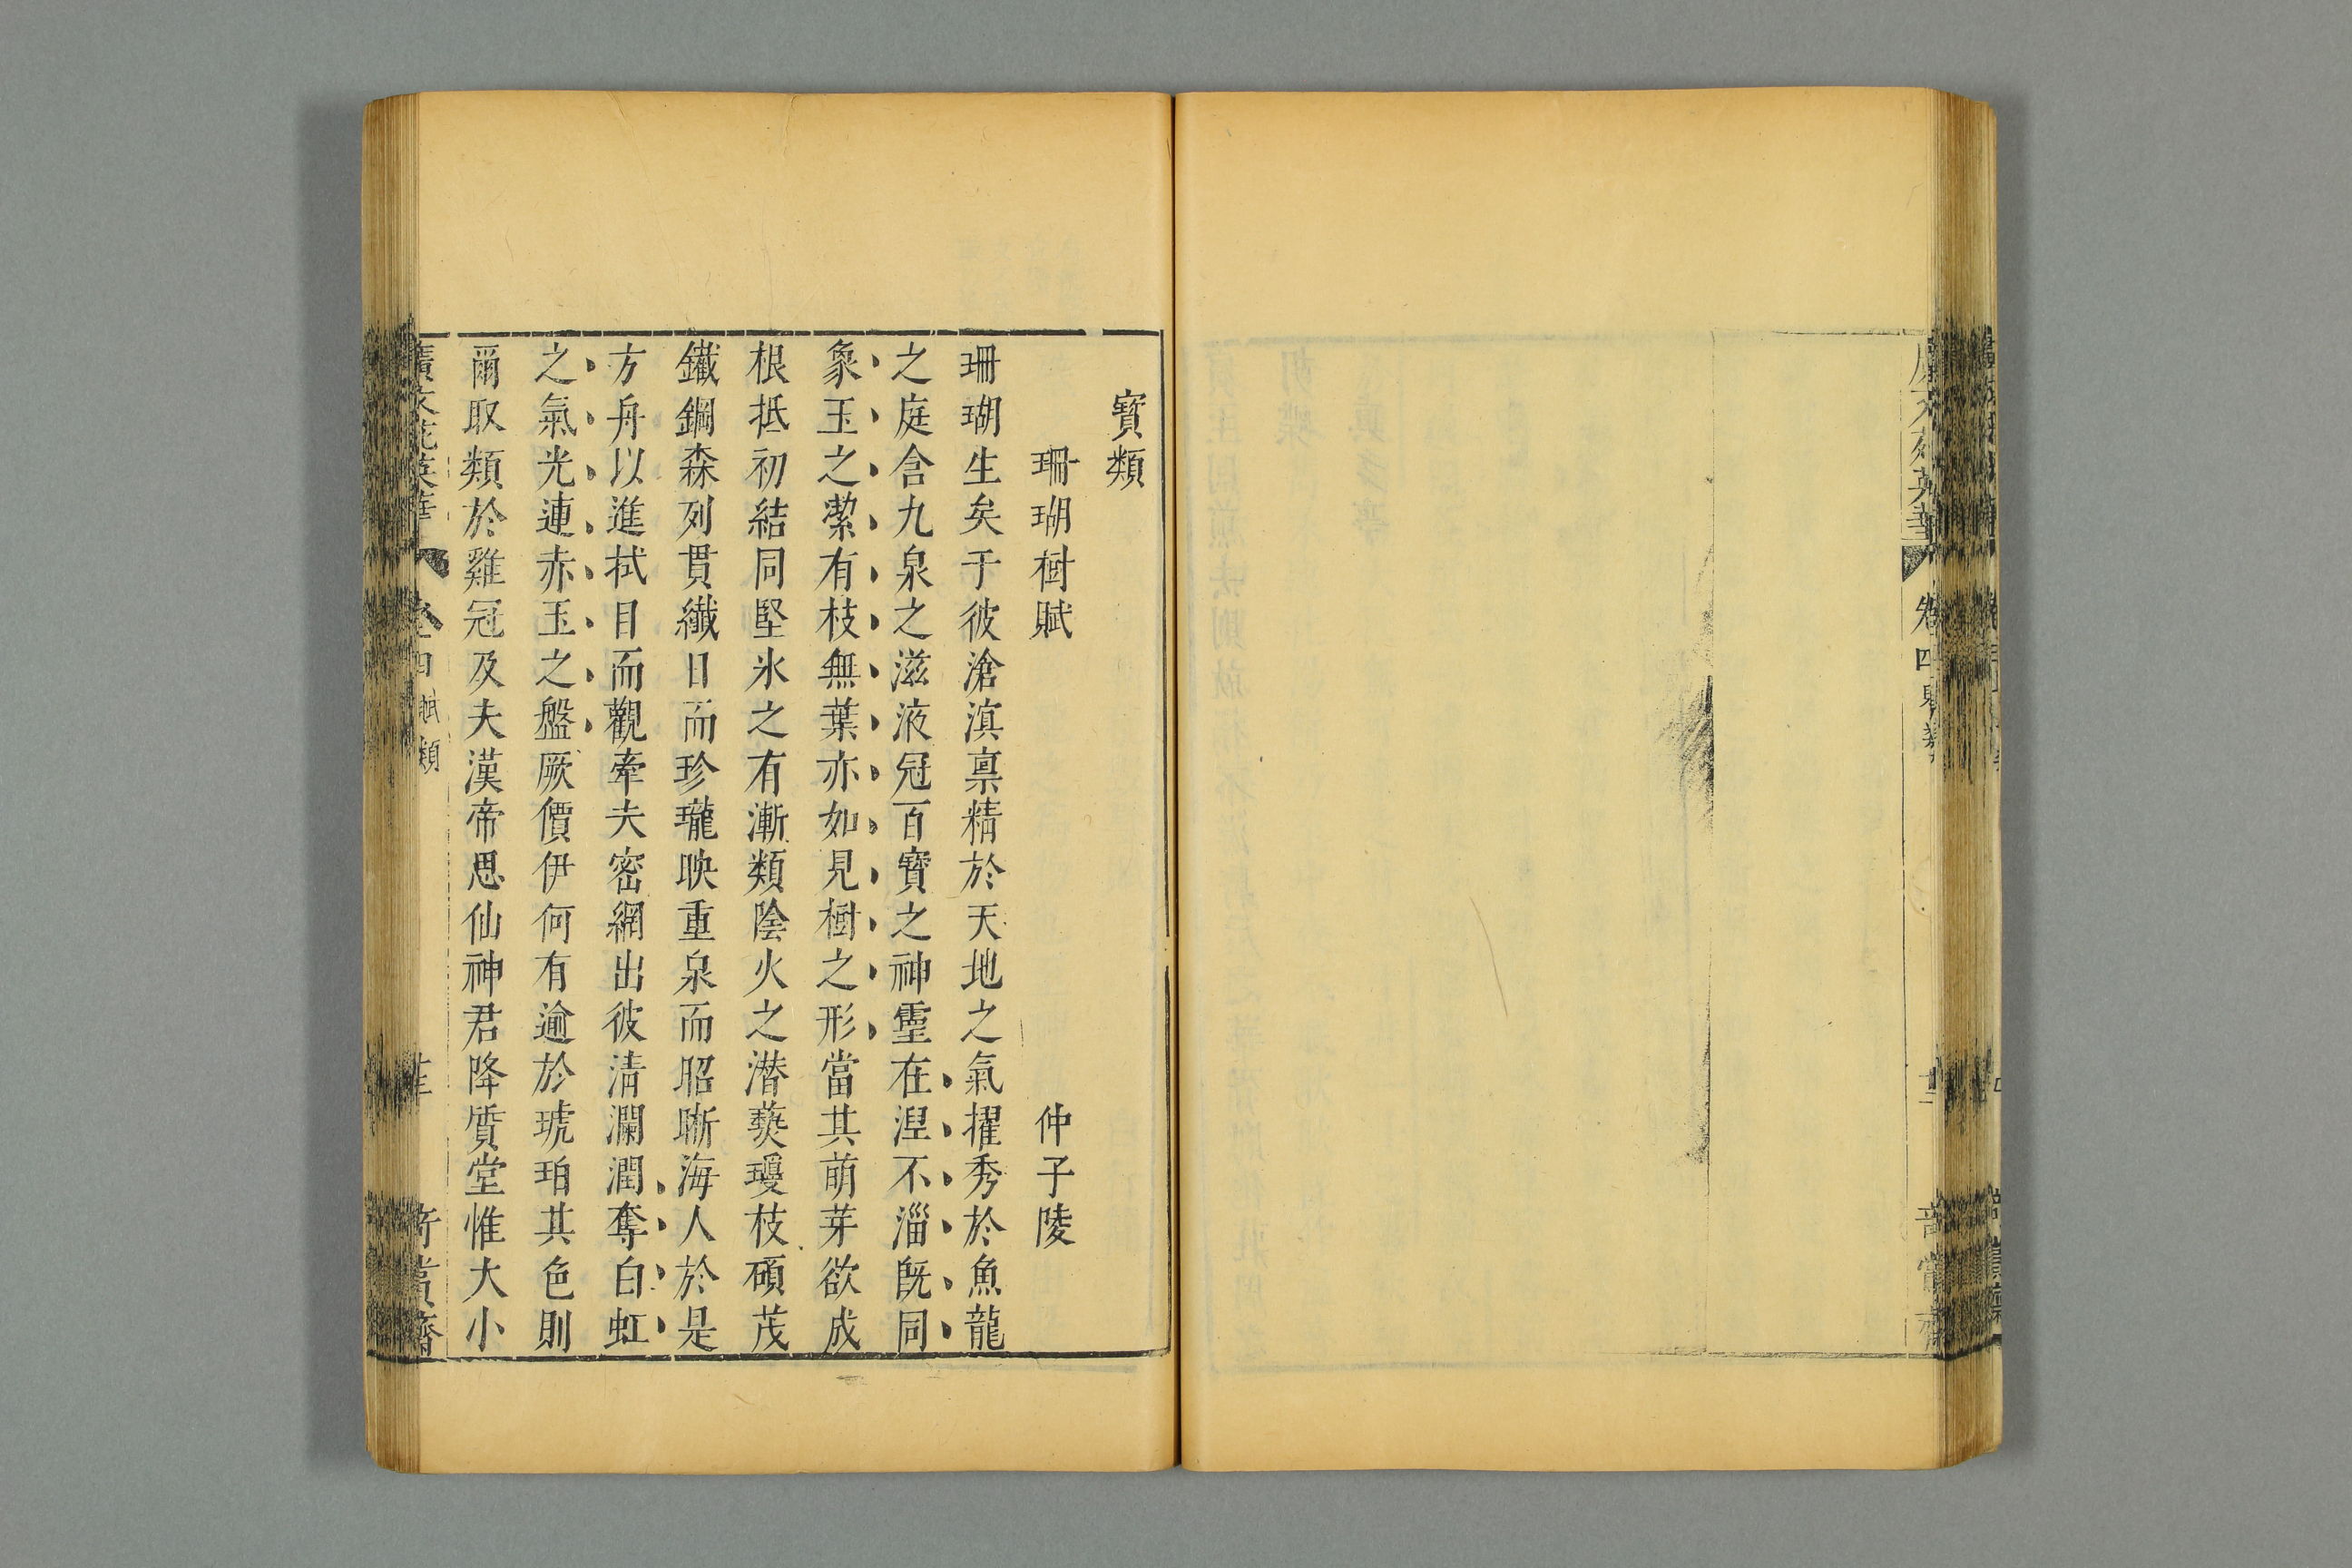 寳類
珊瑚樹賦 仲子陵
珊瑚生矣于彼滄溟禀精於天地之氣擢秀於魚龍
之庭含九泉之滋液冠百寳之神靈在湼不淄旣同
象玉之潔有枝無葉亦如見樹之形當其萌芽欲成
根抵初結同堅氷之有漸類陰火之潜爇瓊枝碩茂
鐵鋼森列貫纎日而珍瓏映重泉而昭晰海人於是
方舟以進拭目而觀牽夫密網出彼清瀾潤奪白虹
之氣光連赤玉之盤厥價伊何有逾於琥珀其色則
爾取類於雞冠及夫漢帝思仙神君降質堂惟大小